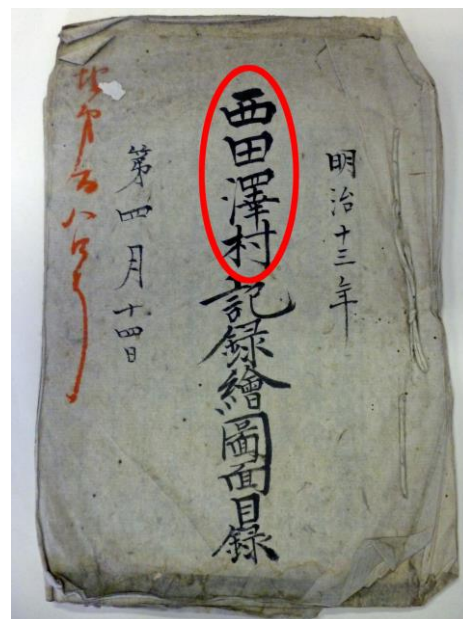 明治十三年
西田澤村記録繪圖面目録
第四月十四日